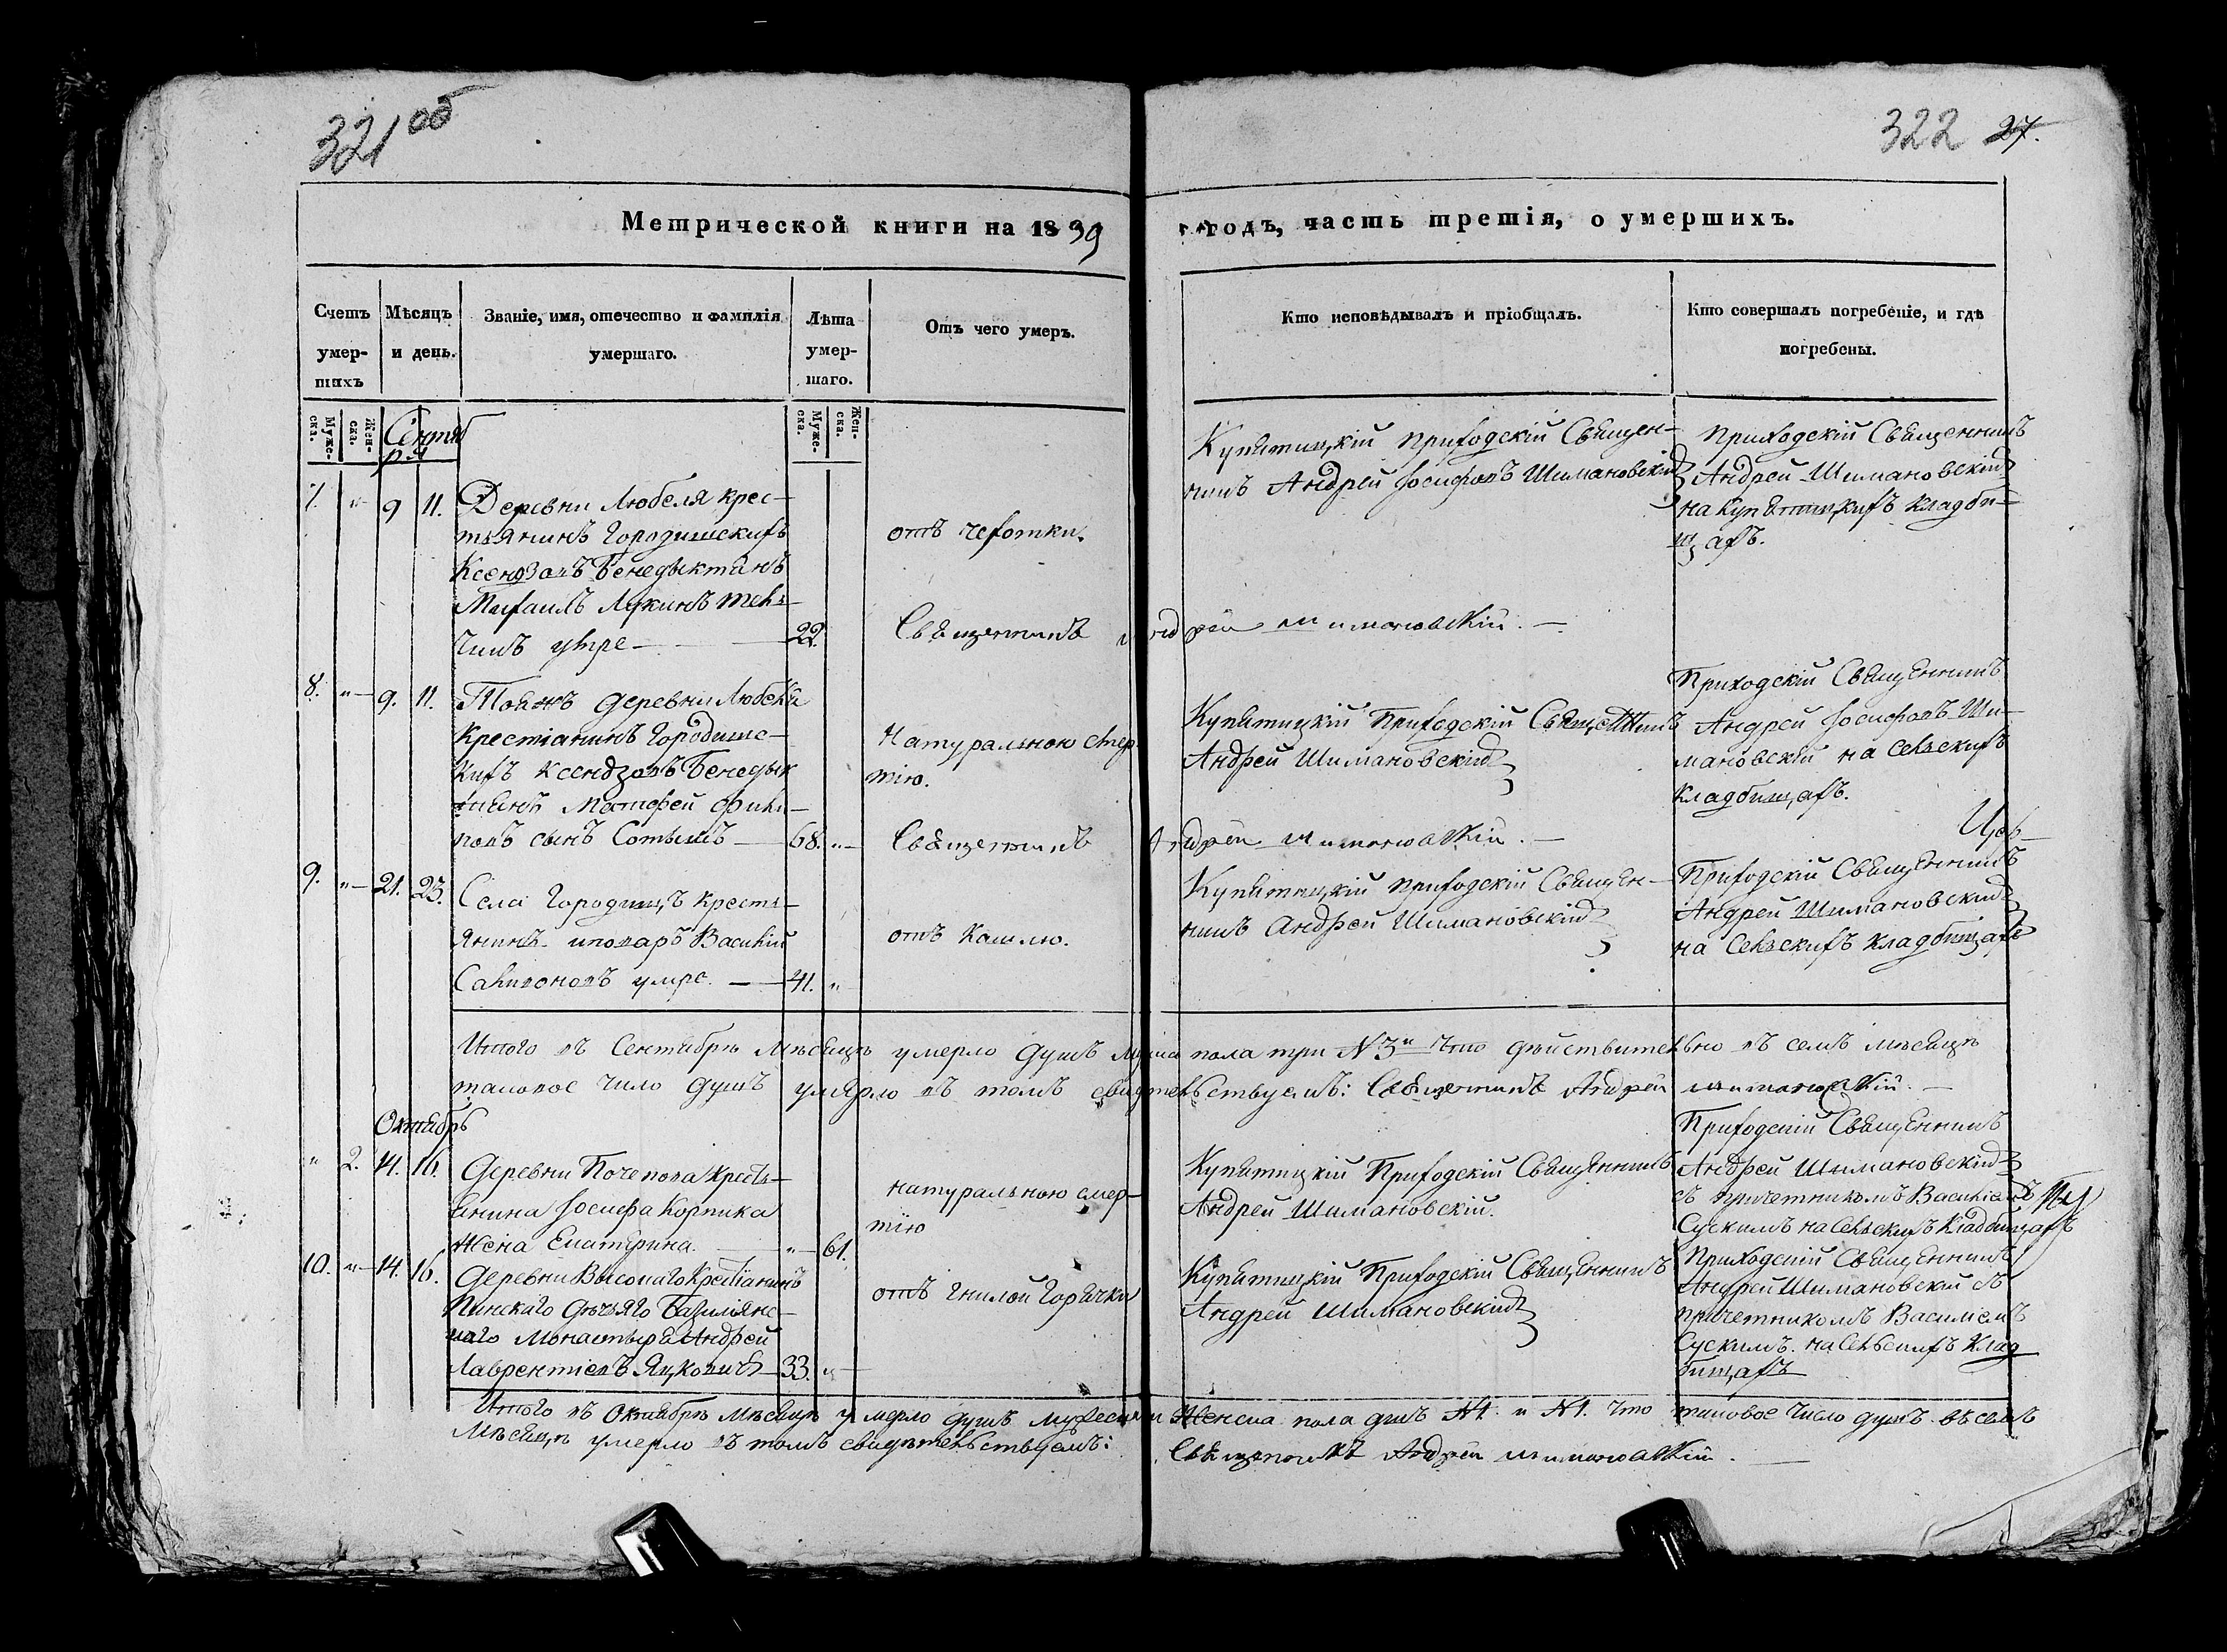 321 об
322 27.
Метрической книги на 1839 годъ, часть третія, о умершихъ.
Счетъ умер-шихъ
Мѣсяцъ и день.
Званіе, имя, отечество и фамилія умершаго.
Лѣта умер-шаго.
Отъ чего умеръ.
Кто исповѣдывалъ и пріобщалъ.
Кто совершалъ погребеніе, и гдѣ погребены.
Муже-ска.
Жен-ска.
Муже-ска.
Жен-ска.
Сентяб
ря
7. " 9 11. Деревни Любеля крес-
тьянинъ Городишскихъ
Ксендзовъ Бенедыктинъ
Михаилъ Лукинъ
умре — 22.
отъ чехотки.
Купятицкій приходскій Священ-
никъ Андрей Іосифовъ Шимановскій
Приходскій Священникъ
Андрей Шимановскій
на Купятицкихъ кладби-
щахъ.
Священникъ Андрей Шимановскій. —
8. " 9. 11. деревни Любеля
Крестіанинъ Городишс-
кихъ Ксендзовъ Бенедык
тинъ Матфей Филип
повъ сынъ — 68. "
Натуральною смер
тію.
Купятицкій Приходскій Священникъ
Андрей Шимановскій
Приходскій Священникъ
Андрей Іосифовъ Ши-
мановскій на Сельскихъ
кладбищахъ.
Священникъ Андрей Шимановскій. —
9. " 21. 23. Села Городищъ кресть-
янинъ Василій
умре. — 41. "
отъ Кашлю.
Купятицкій приходскій Священ-
никъ Андрей Шимановскій
Приходскій Священникъ
Андрей Шимановскій
на Сельскихъ кладбищахъ
Итого въ Сентябрѣ Мѣсяцѣ умерло душъ пола три №3" что дѣйствительно въ семъ мѣсяцѣ
таковое число душъ умярло въ томъ свидѣтельствуемъ: Священникъ Андрей Шимановскій. —
Октябрь
" 2. 14. 16. Деревни Почепова Кресть-
янина Іосифа Корпика
Жена Екатерина. — " 61.
натуральною смер-
тію
Купятицкій Приходскій Священникъ
Андрей Шимановскій.
Приходскій Священникъ
Андрей Шимановскій
съ причетникомъ Василіемъ
Сускимъ на Сельскихъ Кладбищахъ
10. " 14. 16. Деревни Высокаго Крестіанинъ
Пинскаго Базиліянс-
каго Монастыря Андрей
Лаврентіевъ Яцковичъ — 33. "
отъ гнилой Горячки
Купятицкій Приходскій Священникъ
Андрей Шимановскій
Приходскій Священникъ
Андрей Шимановскій съ
причетникомъ Василіемъ
Сускимъ. на Сельскихъ Клад
бищахъ
Итого въ Октябрѣ Мѣсяцѣ умерло душъ мужеска и Женска пола душъ №1. и №1. что таковое число душъ въ семъ
Мѣсяцѣ умерло въ томъ свидѣтельствуемъ: Священникъ Андрей Шимановскій. —